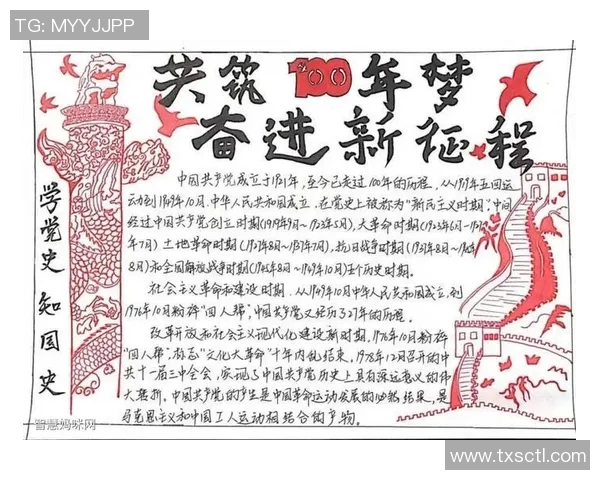 TG: MYYJJPP
共筑100年梦
奋进新征程
学党史 知国史
中国共产党成立于1921年,至今已走过100年的历程。从1919年五四运
动到1949年10月,中华人民共和国成立,在党史上被称为"新民主义时期",中间
经过中国共产党创立时期(1919年9月~1923年5月),大革命时期(1923年6月~1927
年7月)土地革命时期(1927年8月~1937年7月),抗日战争时期(1937年8月~1945
8月)和全国解放战争时期(1945年8月~1949年10月)五个历史时期。
社会主义革命和建设时期。从1949年10月中华人民共和国成立,到
1976年10月粉碎"四人帮",中国共产党又经历了27年的历程。
改革开放和社会主义现代化建设新时期。1976年10月粉碎
"四人帮",标志"文化大革命"十年内乱结束,1978年12月召开的中
共十一届三中全会,实现了中国共产党历史上具有深远意义的伟
大转折。中国共产党的产生是中国革命运动发展的必然结果,是
马克思主义和中国工人运动相结合的产物。
智慧妈咪网
www.txsctl.com